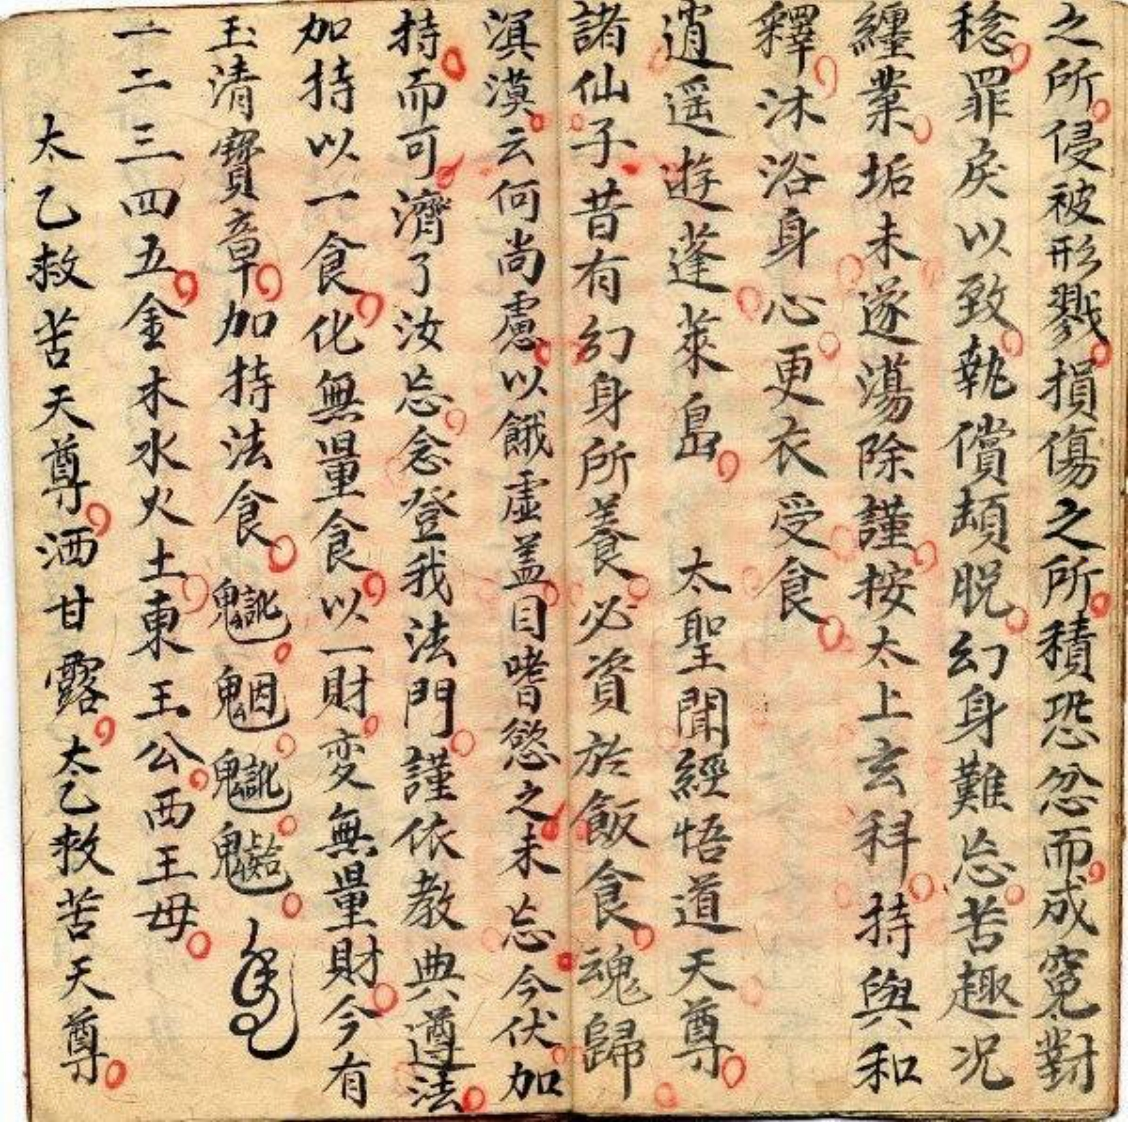 之所侵被形戮損傷之所積恐忿而成冤對
稔罪戾以致執償頓脱幻身難忘苦趣况
纏業垢未遂蕩除謹按太上玄科持與和
釋沐浴身心更衣受食
逍遥遊蓬萊島　太聖聞經悟道天尊
諸仙子昔有幻身所養必資於飯食魂歸
溟漠云何尚慮以餓虛盖目嗜慾之未忘今伏加
持而可濟了汝忘念登我法門謹依教典遵法
加持以一食化無量食以一財变無量財今有
玉清寶章加持法食
一二三四五金木水火土東王公西王母
太乙救苦天尊洒甘露太乙救苦天尊